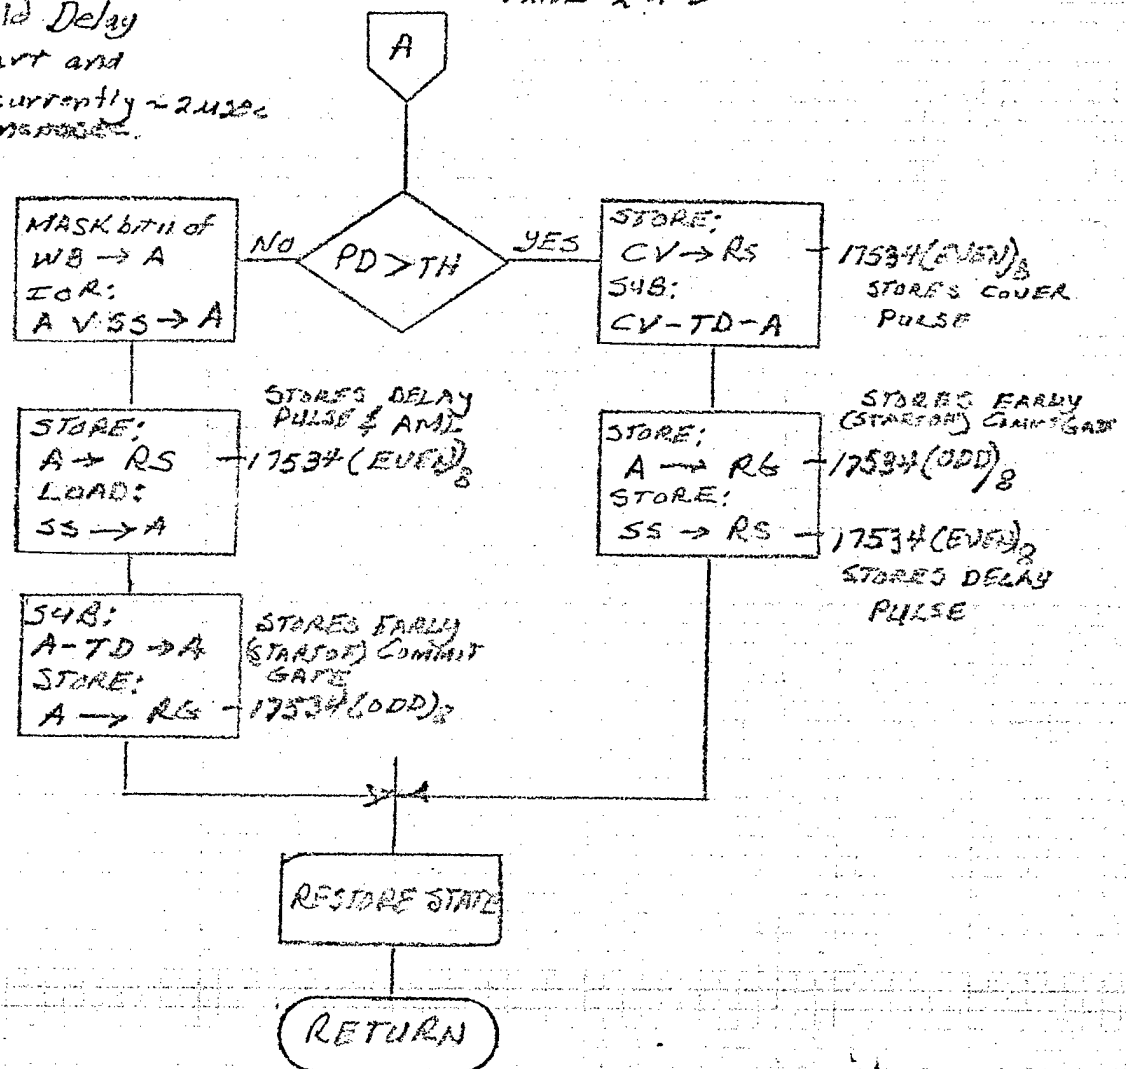 Delay
and
currently ~ 2 usec
A
MASK bit 11 of
WB → A
IOR:
A V SS → A
NO
PD > TH
YES
STORE:
CV → RS
SUB:
CV-TD-A
17534(EVEN)8
STORES COVER
PULSE
STORE:
A → RS
LOAD:
SS → A
STORES DELAY
PULSE & AML
17534(EVEN)8
STORE:
A → RG
STORE:
SS → RS
STORES EARLY
(START OF) COMMIT GATE
17534(ODD)8
17534(EVEN)8
STORES DELAY
PULSE
SUB:
A-TD → A
STORE:
A → RG
STORES EARLY
(START OF) COMMIT
GATE
17534(ODD)8
RESTORE STATE
RETURN